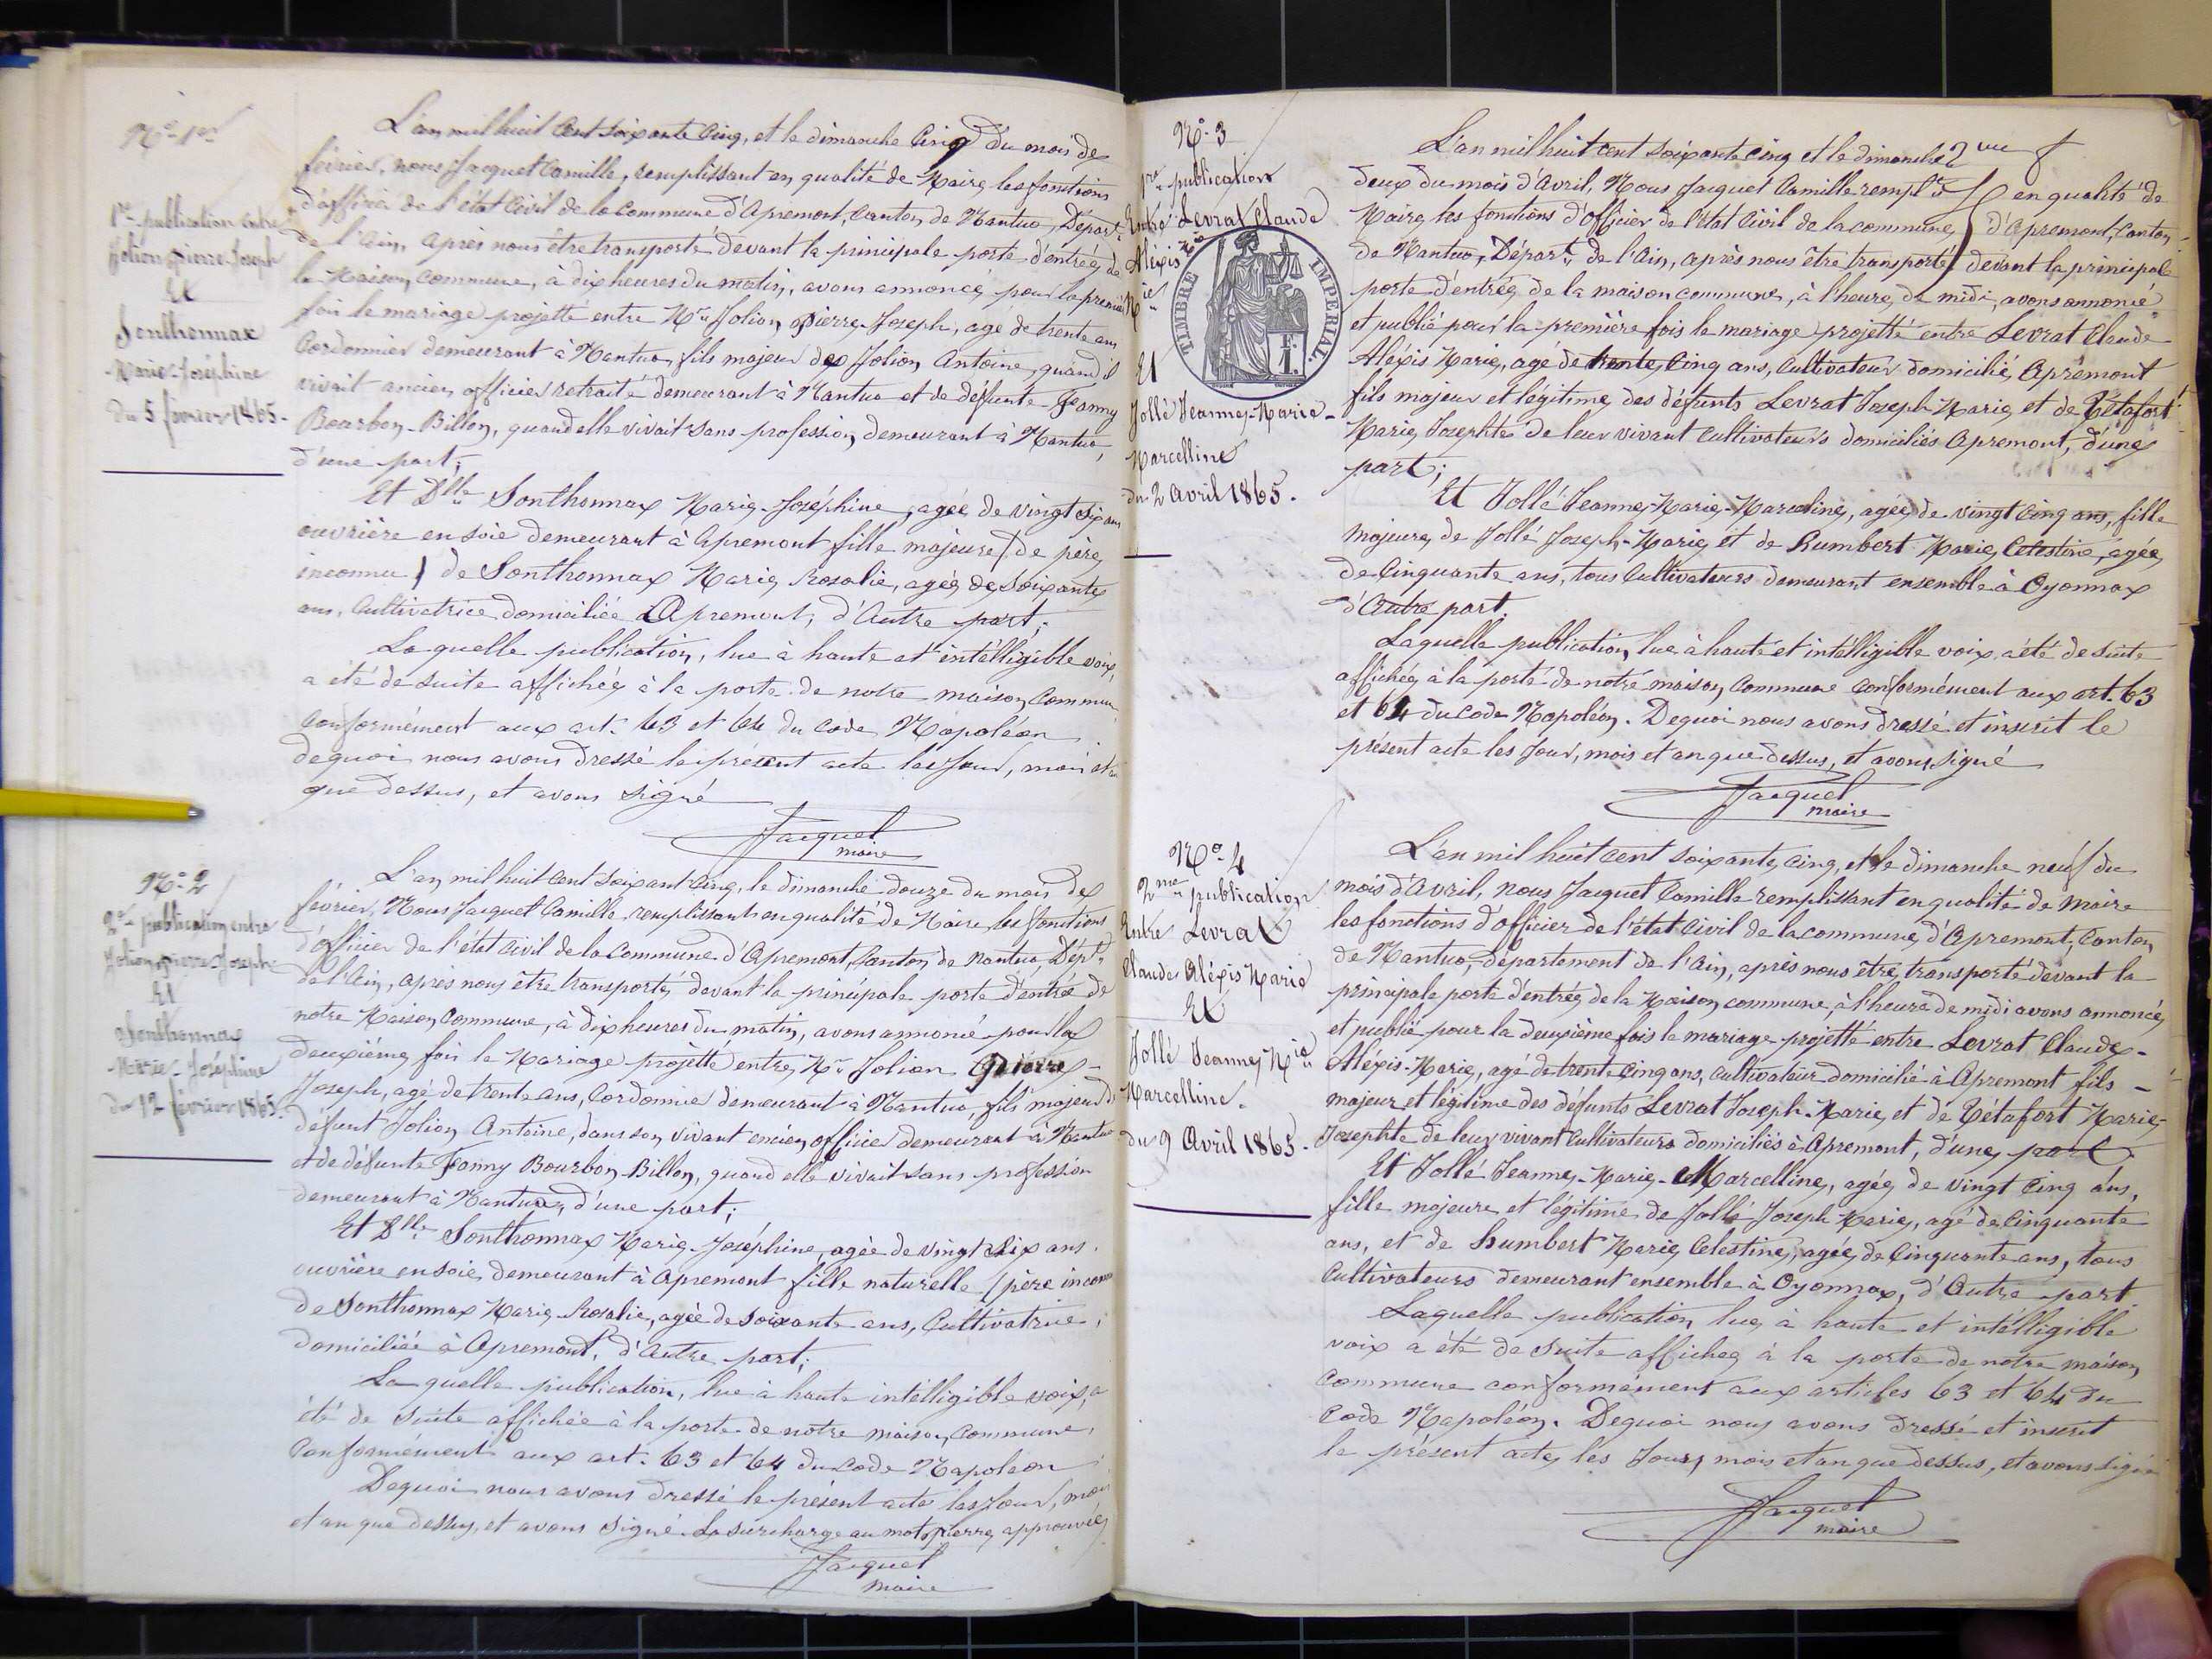 N° 1er
1re publication entre
Jolion pierre Joseph
Et
Sonthonnax
Marie-Joséphine
Du 5 février 1865.
L'an mil huit cent soixante cinq, et le dimanche cinq du mois de
février, nous Jacquet Camille, remplissant en qualité de Maire les fonctions
d'officier de l'état civil de la commune d'Apremont, canton de Nantua, Départ.t
de l'Ain, après nous être transporté devant la principale porte d'entrée de
la Maison commune, à dix heures du matin, avons annoncé pour la première
fois le mariage projetté entre Mr Jolion pierre Joseph, agé de trente ans
Cordonnier demeurant à Nantua, fils majeur de Jolion Antoine, quand il
vivait ancien officier retraité demeurant à Nantua et de défunte Fanny
Bourbon-Billon, quand elle vivait sans profession demeurant à Nantua,
d'une part;
Et Dlle Sonthonnax Marie-Joséphine, agée de vingt six ans
ouvrière en soie demeurant à Apremont fille majeure (de père
inconnu) de Sonthonnax Marie Rosalie, agée de soixante
ans, Cultivatrice domiciliée Apremont, d'autre part;
Laquelle publication, lue à haute et intélligible voix,
a été de suite affichée à la porte de notre maison commune
conformément aux art. 63 et 64 du code Napoléon
dequoi nous avons dressé le présent acte les jour, mois et an
que dessus, et avons signé
Jacquet
maire
N° 2
2e publication entre
Jolion pierre Joseph
Et
Sonthonnax
Marie-Joséphine
du 12 février 1865.
L'an mil huit cent soixant cinq, le dimanche douze du mois de
février, Nous Jacquet Camille remplissant en qualité de Maire les fonctions
d'officier de l'état civil de la commune d'Apremont, canton de Nantua, Dépt
de l'Ain, après nous être transporté devant la principale porte d'entrée de
notre Maison commune, à dix heures du matin, avons annoncé pour la
deuxième fois le Mariage projetté entre Mr Jolion pierre
Joseph, agé de trente ans, Cordonnie demeurant à Nantua, fils majeur de
défunt Jolion Antoine, dans son vivant ancien officier demeurant à Nantua
et de défunte Fanny Bourbon-Billon, quand elle vivait sans profession
demeurant à Nantua, d'une part;
Et Dlle Sonthonnax Marie Joséphine, agée de vingt six ans
ouvrière en soie demeurant à Apremont fille naturelle (père inconnu
de Sonthonnax Marie Rosalie, agée de soixante ans, Cultivatrice
domiciliée à Apremont, d'autre part;
La quelle publication, lue à haute intélligible voix, a
été de suite affichée à la porte de notre maison commune,
Conformément aux art. 63 et 64 du code Napoléon
Dequoi nous avons dressé le présent acte les jour, mois
et an que dessus, et avons signé. La surcharge au mot pierre approuvée
Jacquet
maire
N° 3
1re publication
Entre Levrat Claude
Aléxis Mie
Et
Jollé Jeanne-Marie-
Marcelline
du 2 Avril 1865.
TIMBRE IMPERIAL.
1 F.
L'an mil huit cent soixante cinq et le dimanche
deux du mois d'avril, Nous Jacquet Camille rempl.t en qualité de
Maire, les fonctions d'officier de l'état civil de la commune d'Apremont, canton
de Nantua, Départ.t de l'Ain, après nous être transporté devant la principale
porte d'entrée de la maison commune, à l'heure de midi, avons annoncé
et publié pour la première fois le mariage projetté entre Levrat Claude
Aléxis Marie, agé de trente cinq ans, cultivateur domicilié Apremont
fils majeur et légitime des défunts Levrat Joseph Marie et de Tétafort
Marie Josephte de leur vivant cultivateurs domiciliés Apremont, d'une
part;
Et Jollé Jeanne-Marie-Marceline, agée de vingt cinq ans, fille
majeure de Jollé Joseph-Marie et de Humbert Marie Celestine, agée
de Cinquante ans, tous Cultivateurs demeurant ensemble à Oyonnax
d'Autre part.
Laquelle publication lue à haute et intélligible voix a été de suite
affichée à la porte de notre maison commune conformément aux art. 63
et 64 du code Napoléon. Dequoi nous avons dressé et inscrit le
présent acte les jour, mois et an que dessus, et avons signé
Jacquet
maire
N° 4
2me publication
Entre Levrat
Claude Aléxis Marie
Et
Jollé Jeanne Mie
Marcelline.
du 9 Avril 1865.
L'an mil huit cent soixante cinq, et le dimanche neuf du
mois d'avril, nous Jacquet Camille remplissant en qualité de maire
les fonctions d'officier de l'état civil de la commune d'Apremont, Canton
de Nantua, département de l'Ain, après nous être transporté devant la
principale porte d'entrée de la Maison commune, à l'heure de midi avons annoncé
et publié pour la deuxième fois le mariage projetté entre Levrat Claude-
Aléxis-Marie, agé de trente cinq ans, cultivateur domicilié à Apremont fils
majeur et légitime des défunts Levrat Joseph-Marie et de Tétafort Marie-
Josephte de leur vivant Cultivateurs domiciliés à Apremont, d'une part
Et Jollé Jeanne-Marie-Marcelline, agée de vingt cinq ans,
fille majeure et légitime de Jollé Joseph Marie, agé de Cinquante
ans, et de Humbert Marie Celestine, agée de Cinquante ans, tous
Cultivateurs demeurant ensemble à Oyonnax, d'Autre part
Laquelle publication lue à haute et intélligible
voix a été de suite affichée à la porte de notre maison
commune conformément aux articles 63 et 64 du
code Napoléon. Dequoi nous avons dressé et inscrit
le présent acte, les Jour, mois et an que dessus, et avons signé
Jacquet
maire